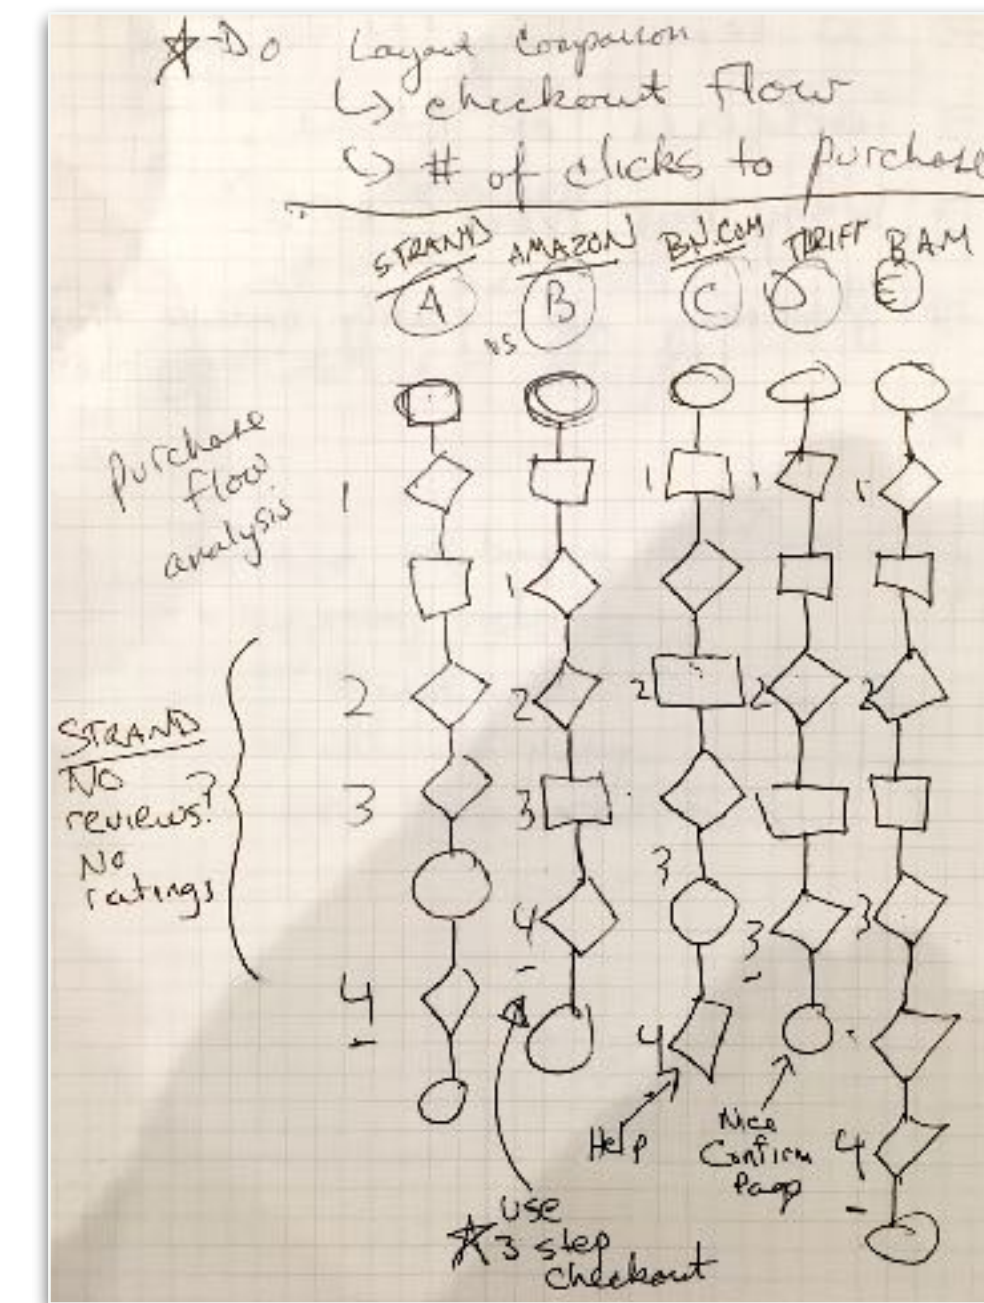 Do Layout Comparison
checkout flow
# of clicks to purchase
STRAND AMAZON BN.COM THRIFT BAM
A B C D E
vs
purchase
flow
analysis
1 1 1 1
1
2 2 2 2 2
STRAND
NO
reviews?
No
ratings
3 3
3
4 3 3
4 4
Help
Nice
Confirm
Page
4
use
3 step
checkout